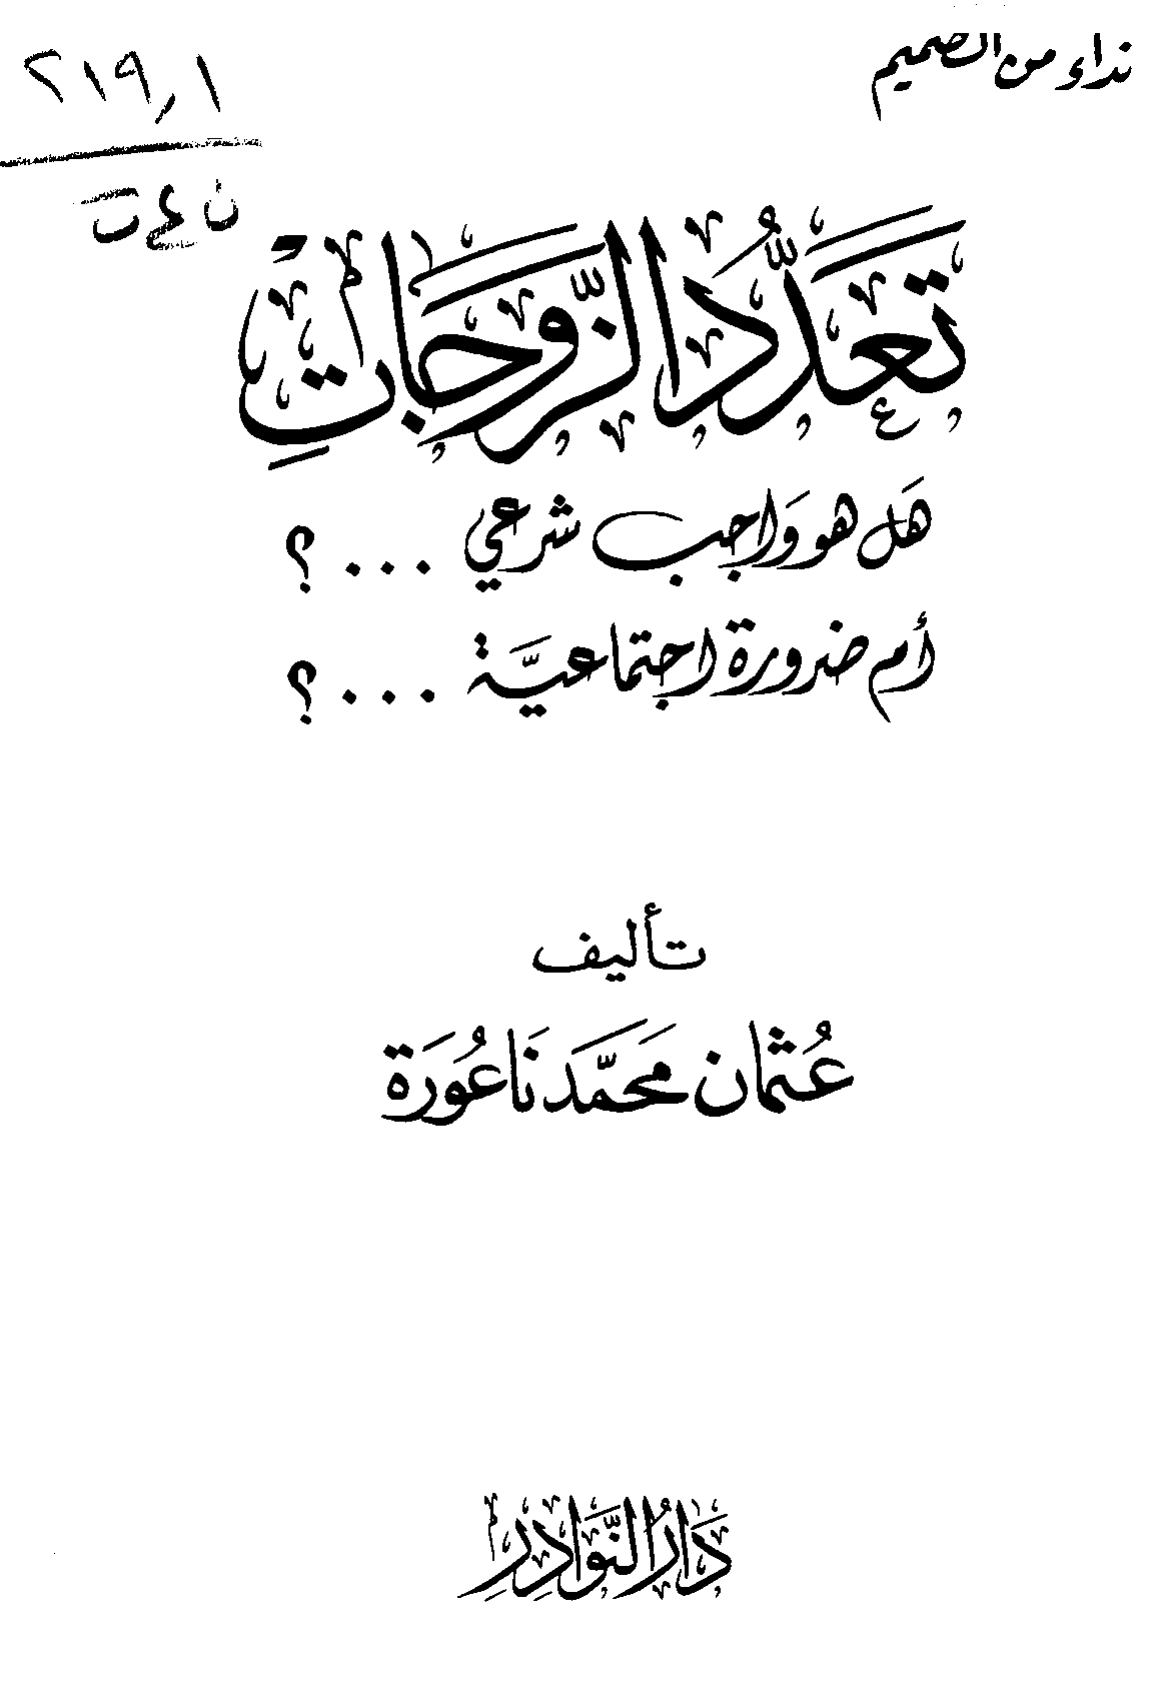 نداء من الصميم
٢١٩٫١
ن ع ت
تَعَدُّدُ الزَّوْجَاتِ
هَل هو وَاجب شرعي ...؟
أم ضرورة اجتماعيَّة ...؟
تأليف
عُثمان محمَّد نَاعُورَة
دَارُ النَّوَادِرِ